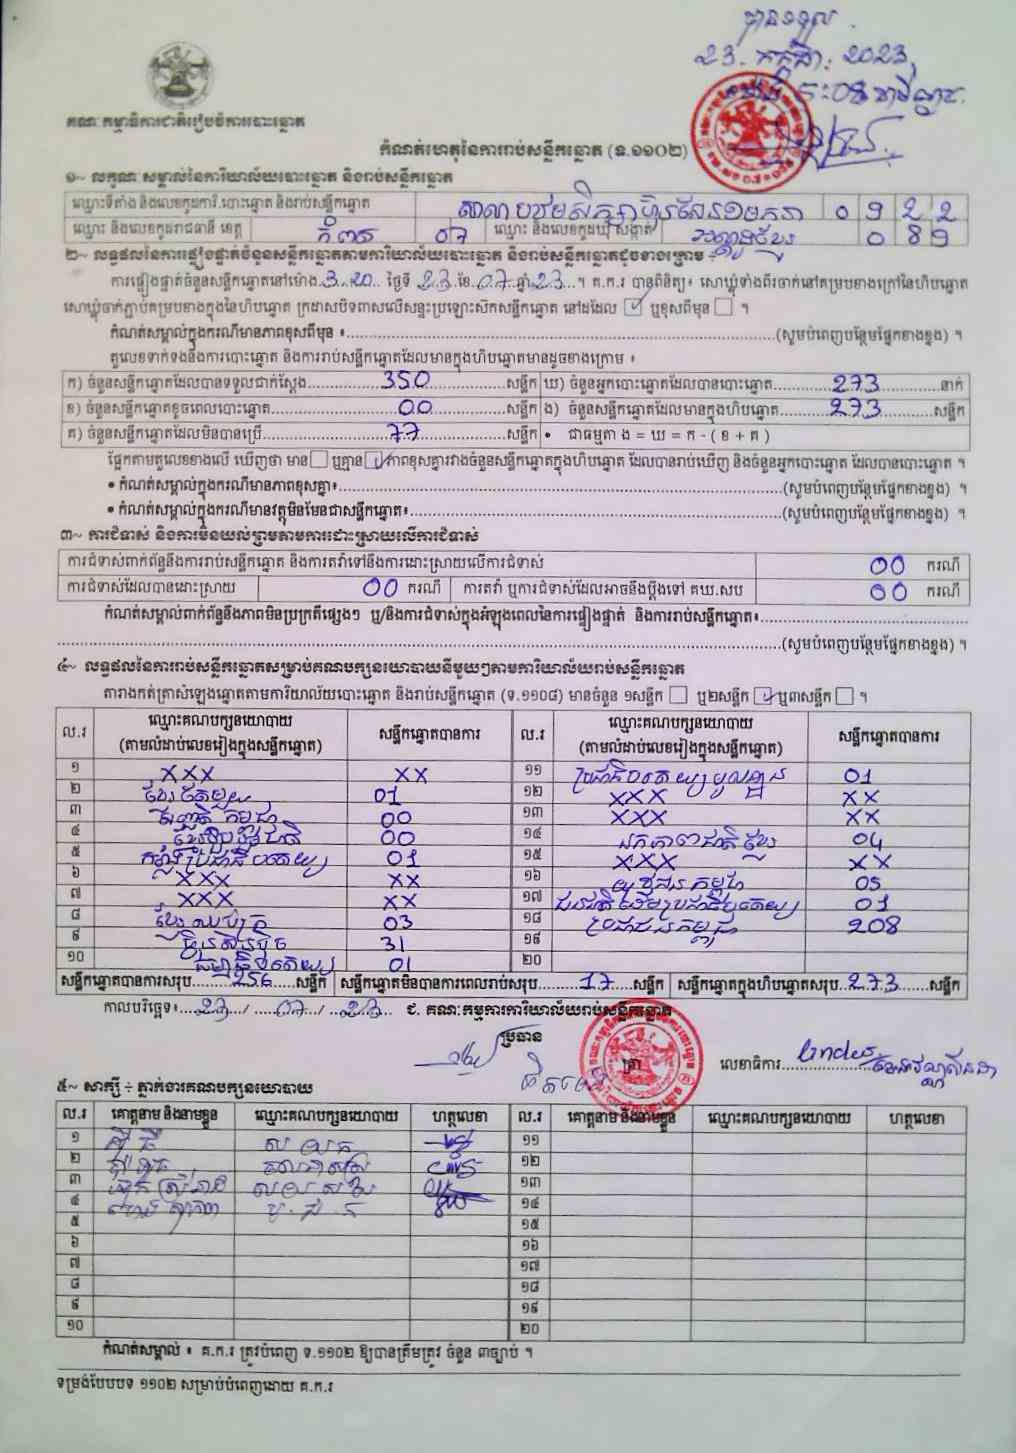 បានទទួល
23. កក្កដា. 2023
គណៈកម្មាធិការជាតិរៀបចំការបោះឆ្នោត
កំណត់ហេតុនៃការរាប់សន្លឹកឆ្នោត (ទ.១១០២)
១~ លក្ខណៈ សម្គាល់នៃការិយាល័យបោះឆ្នោត និងរាប់សន្លឹកឆ្នោត
ឈ្មោះទីតាំង និងលេខកូដការិ.បោះឆ្នោត និងរាប់សន្លឹកឆ្នោត 0922
ឈ្មោះ និងលេខកូដរាជធានី ខេត្ត កំពត 07 ឈ្មោះ និងលេខកូដឃុំ សង្កាត់ 089
២~ លទ្ធផលនៃការផ្ទៀងផ្ទាត់ចំនួនសន្លឹកឆ្នោតតាមការិយាល័យបោះឆ្នោត និងរាប់សន្លឹកឆ្នោតដូចខាងក្រោម ÷
ការផ្ទៀងផ្ទាត់ចំនួនសន្លឹកឆ្នោតនៅម៉ោង 3.20 ថ្ងៃទី 23 ខែ 07 ឆ្នាំ 23 ។ គ.ក.រ បានពិនិត្យ៖ សោឃ្លុំទាំងពីរចាក់នៅគម្របខាងក្រៅនៃហិបឆ្នោត
សោឃ្លុំចាក់ភ្ជាប់គម្របខាងក្នុងនៃហិបឆ្នោត ក្រដាសបិទពាសលើសន្ទះប្រឡោះសិកសន្លឹកឆ្នោត នៅដដែល ☑ ឬខុសពីមុន ☐ ។
កំណត់សម្គាល់ក្នុងករណីមានភាពខុសពីមុន ៖ (សូមបំពេញបន្ថែមផ្នែកខាងខ្នង) ។
តួលេខទាក់ទងនឹងការបោះឆ្នោត និងការរាប់សន្លឹកឆ្នោតដែលមានក្នុងហិបឆ្នោតមានដូចខាងក្រោម ៖
ក) ចំនួនសន្លឹកឆ្នោតដែលបានទទួលជាក់ស្តែង 350 សន្លឹក ឃ) ចំនួនអ្នកបោះឆ្នោតដែលបានបោះឆ្នោត 273 នាក់
ខ) ចំនួនសន្លឹកឆ្នោតខូចពេលបោះឆ្នោត 00 សន្លឹក ង) ចំនួនសន្លឹកឆ្នោតដែលមានក្នុងហិបឆ្នោត 273 សន្លឹក
គ) ចំនួនសន្លឹកឆ្នោតដែលមិនបានប្រើ 77 សន្លឹក • ជាធម្មតា ង = ឃ = ក - ( ខ + គ )
ផ្អែកតាមតួលេខខាងលើ ឃើញថា មាន ☐ ឬគ្មាន ☑ ភាពខុសគ្នារវាងចំនួនសន្លឹកឆ្នោតក្នុងហិបឆ្នោត ដែលបានរាប់ឃើញ និងចំនួនអ្នកបោះឆ្នោត ដែលបានបោះឆ្នោត ។
• កំណត់សម្គាល់ក្នុងករណីមានភាពខុសគ្នា៖ (សូមបំពេញបន្ថែមផ្នែកខាងខ្នង) ។
• កំណត់សម្គាល់ក្នុងករណីមានវត្ថុមិនមែនជាសន្លឹកឆ្នោត៖ (សូមបំពេញបន្ថែមផ្នែកខាងខ្នង) ។
៣~ ការជំទាស់ និងការមិនយល់ព្រមតាមការដោះស្រាយលើការជំទាស់
ការជំទាស់ពាក់ព័ន្ធនឹងការរាប់សន្លឹកឆ្នោត និងការតវ៉ាទៅនឹងការដោះស្រាយលើការជំទាស់ 00 ករណី
ការជំទាស់ដែលបានដោះស្រាយ 00 ករណី ការតវ៉ា ឬការជំទាស់ដែលអាចនឹងប្តឹងទៅ គឃ.សប 00 ករណី
កំណត់សម្គាល់ពាក់ព័ន្ធនឹងភាពមិនប្រក្រតីផ្សេងៗ ឬ/និងការជំទាស់ក្នុងអំឡុងពេលនៃការផ្ទៀងផ្ទាត់ និងការរាប់សន្លឹកឆ្នោត៖
(សូមបំពេញបន្ថែមផ្នែកខាងខ្នង) ។
៤~ លទ្ធផលនៃការរាប់សន្លឹកឆ្នោតសម្រាប់គណបក្សនយោបាយនីមួយៗតាមការិយាល័យរាប់សន្លឹកឆ្នោត
តារាងកត់ត្រាសំឡេងឆ្នោតតាមការិយាល័យបោះឆ្នោត និងរាប់សន្លឹកឆ្នោត (ទ.១១០៨) មានចំនួន ១សន្លឹក ☐ ឬ២សន្លឹក ☑ ឬ៣សន្លឹក ☐ ។
ល.រ ឈ្មោះគណបក្សនយោបាយ (តាមលំដាប់លេខរៀងក្នុងសន្លឹកឆ្នោត) សន្លឹកឆ្នោតបានការ ល.រ ឈ្មោះគណបក្សនយោបាយ (តាមលំដាប់លេខរៀងក្នុងសន្លឹកឆ្នោត) សន្លឹកឆ្នោតបានការ
១ XXX XX ១១ 01
២ ខ្មែរតែមួយ 01 ១២ XXX XX
៣ 00 ១៣ XXX XX
៤ 00 ១៤ ឯកភាពជាតិខ្មែរ 04
៥ កម្លាំងប្រជាធិបតេយ្យ 01 ១៥ XXX XX
៦ XXX XX ១៦ 05
៧ XXX XX ១៧ 01
៨ 03 ១៨ ប្រជាជនកម្ពុជា 208
៩ ហ៊្វុនស៊ិនប៉ិច 31 ១៩
១០ ធម្មាធិបតេយ្យ 01 ២០
សន្លឹកឆ្នោតបានការសរុប 256 សន្លឹក សន្លឹកឆ្នោតមិនបានការពេលរាប់សរុប 17 សន្លឹក សន្លឹកឆ្នោតក្នុងហិបឆ្នោតសរុប 273 សន្លឹក
កាលបរិច្ឆេទ៖ 23 / 07 / 23 ជ. គណៈកម្មការការិយាល័យរាប់សន្លឹកឆ្នោត
ប្រធាន
ត្រា លេខាធិការ
៥~ សាក្សី ÷ ភ្នាក់ងារគណបក្សនយោបាយ
ល.រ គោត្តនាម និងនាមខ្លួន ឈ្មោះគណបក្សនយោបាយ ហត្ថលេខា ល.រ គោត្តនាម និងនាមខ្លួន ឈ្មោះគណបក្សនយោបាយ ហត្ថលេខា
១ ១១
២ ១២
៣ ១៣
៤ ១៤
៥ ១៥
៦ ១៦
៧ ១៧
៨ ១៨
៩ ១៩
១០ ២០
កំណត់សម្គាល់ ៖ គ.ក.រ ត្រូវបំពេញ ទ.១១០២ ឱ្យបានត្រឹមត្រូវ ចំនួន ៣ច្បាប់ ។
ទម្រង់បែបបទ ១១០២ សម្រាប់បំពេញដោយ គ.ក.រ